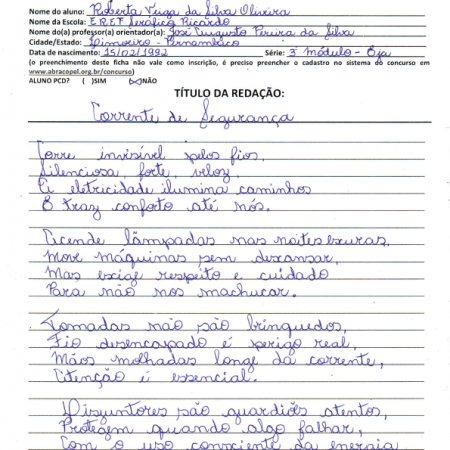 Nome do aluno: Roberta Veiga da Silva Oliveira
Nome da Escola: EREF Seráfico Ricardo
Nome do(a) professor(a) orientador(a): José Augusto Pereira da Silva
Cidade/Estado: Limoeiro - Pernambuco
Data de nascimento: 15/02/1992 Série: 3º módulo - Eja
(o preenchimento deste ficha não vale como inscrição, é preciso preencher o cadastro no sistema do concurso em
www.abracopel.org.br/concurso)
ALUNO PCD? ( )SIM (x)NÃO
TÍTULO DA REDAÇÃO:
Corrente de Segurança
Corre invisível pelos fios,
Silenciosa, forte, veloz,
A eletricidade ilumina caminhos
E traz conforto até nós.
Acende lâmpadas nas noites escuras,
Move máquinas sem descansar,
Mas exige respeito e cuidado
Para não nos machucar.
Tomadas não são brinquedos,
Fio desencapado é perigo real,
Mãos molhadas longe da corrente,
Atenção é essencial.
Disjuntores são guardiões atentos,
Protegem quando algo falhar,
Com o uso consciente da energia